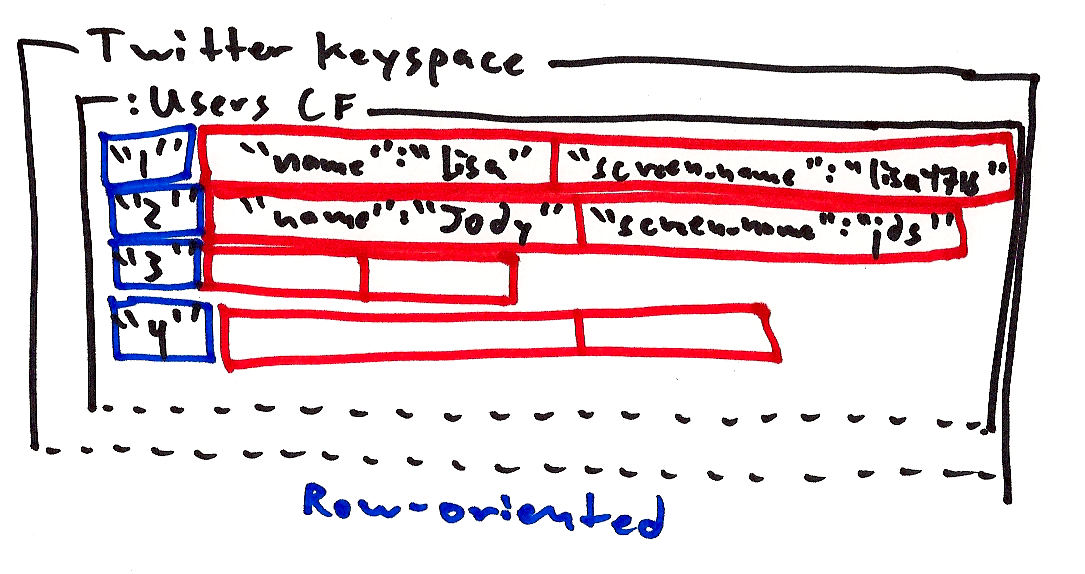 Twitter Keyspace
:Users CF
"1" "name":"Lisa" "screen_name":"lisa4718"
"2" "name":"Jody" "screen_name":"jds"
"3"
"4"
Row-oriented